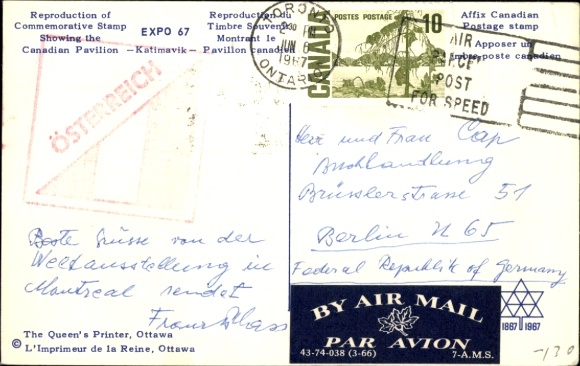 Reproduction of
Commemorative Stamp
Showing the
Canadian Pavilion
EXPO 67
—Katimavik—
Reproduction du
Timbre Souvenir
Montrant le
Pavillon canadien
Affix Canadian
Postage stamp
Apposer un
timbre-poste canadien
TORONTO
PM
JUN 6
1967
ONTARIO
POSTES POSTAGE
10
CANADA
AIR
POST
FOR SPEED
ÖSTERREICH
Herr und Frau Cap
Buchhandlung
Brüsslerstrasse 51
Berlin N 65
Federal Republik of Germany
Beste Grüsse von der
Weltausstellung in
Montreal sendet
Franz
BY AIR MAIL
PAR AVION
43-74-038 (3-66)
7-A.M.S.
1867 1967
The Queen's Printer, Ottawa
© L'Imprimeur de la Reine, Ottawa
-130